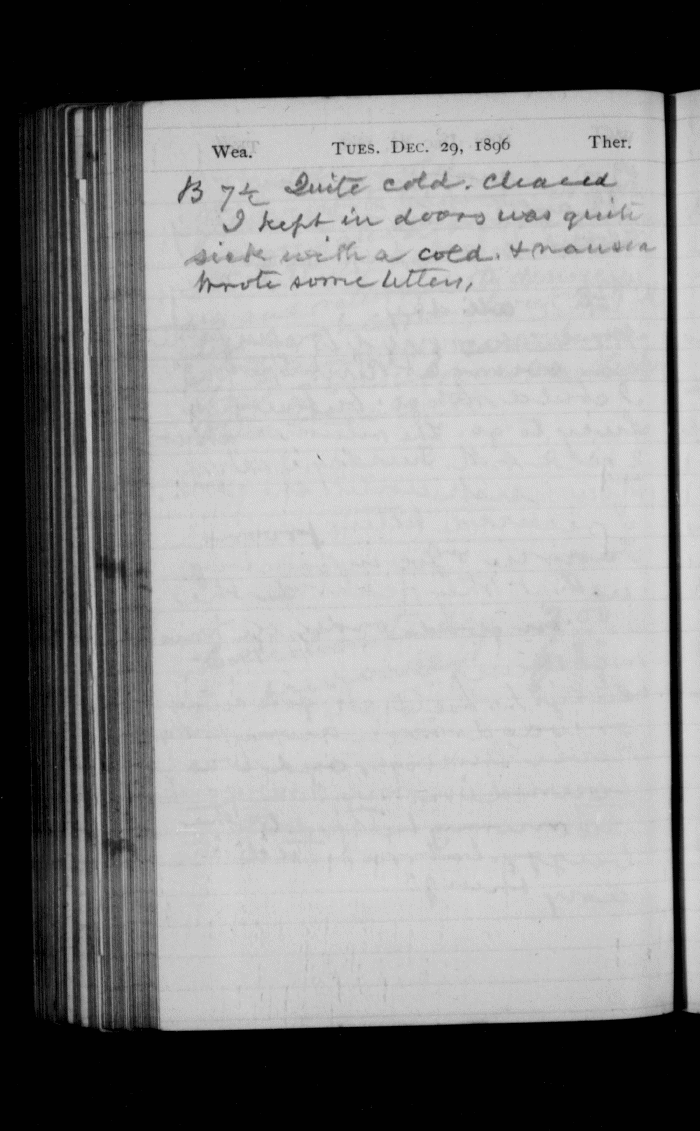 Wea. TUES. DEC. 29, 1896 Ther.
B 7½ Quite cold. Cleared
I kept in doors was quite
sick with a cold. & nausea
Wrote some letters,